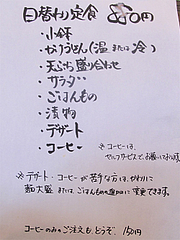 日替わり定食 850円
・小鉢
・かけうどん(温または冷)
・天ぷら盛り合わせ
・サラダ
・ごはんもの
・漬物
・デザート
・コーヒー
※コーヒーは、
セルフサービスでお願いします
※デザート・コーヒーが苦手な方は、かわりに
麺大盛 または ごはんもの大盛に変更できます。
コーヒーのみのご注文も、どうぞ。150円